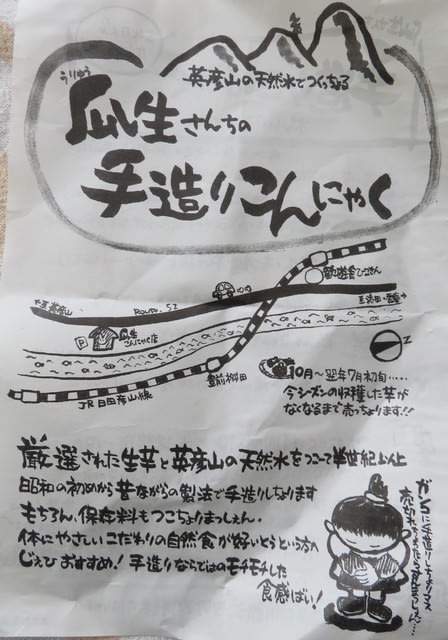 英彦山の天然水でつくってる
うりゅう
瓜生さんちの
手造りこんにゃく
歓遊舎ひこさん
Route.52
至英彦山
至添田・香春
P
瓜生
こんにゃく店
豊前桝田
JR日田彦山線
N
10月〜翌年7月初旬.....
今シーズンの収穫した芋が
なくなるまで売っちょります!!
厳選された生芋と英彦山の天然水をつこーて半世紀以上
昭和の初めから昔ながらの製法で手造りしちょります
もちろん、保存料もつこちょりまっしぇん。
体にやさしいこだわりの自然食が好いとうという方へ
じぇひおすすめ!手造りならではのモチモチした
食感ばい!
がんこに手造りしちょりマス
売切れちょったら